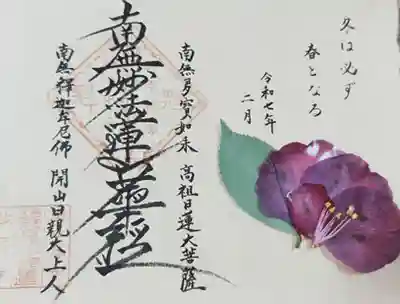 冬は必ず
春となる
令和七年
二月
南無多寶如来 高祖日蓮大菩薩
南無妙法蓮華経
南無釋迦牟尼佛 開山日親大上人